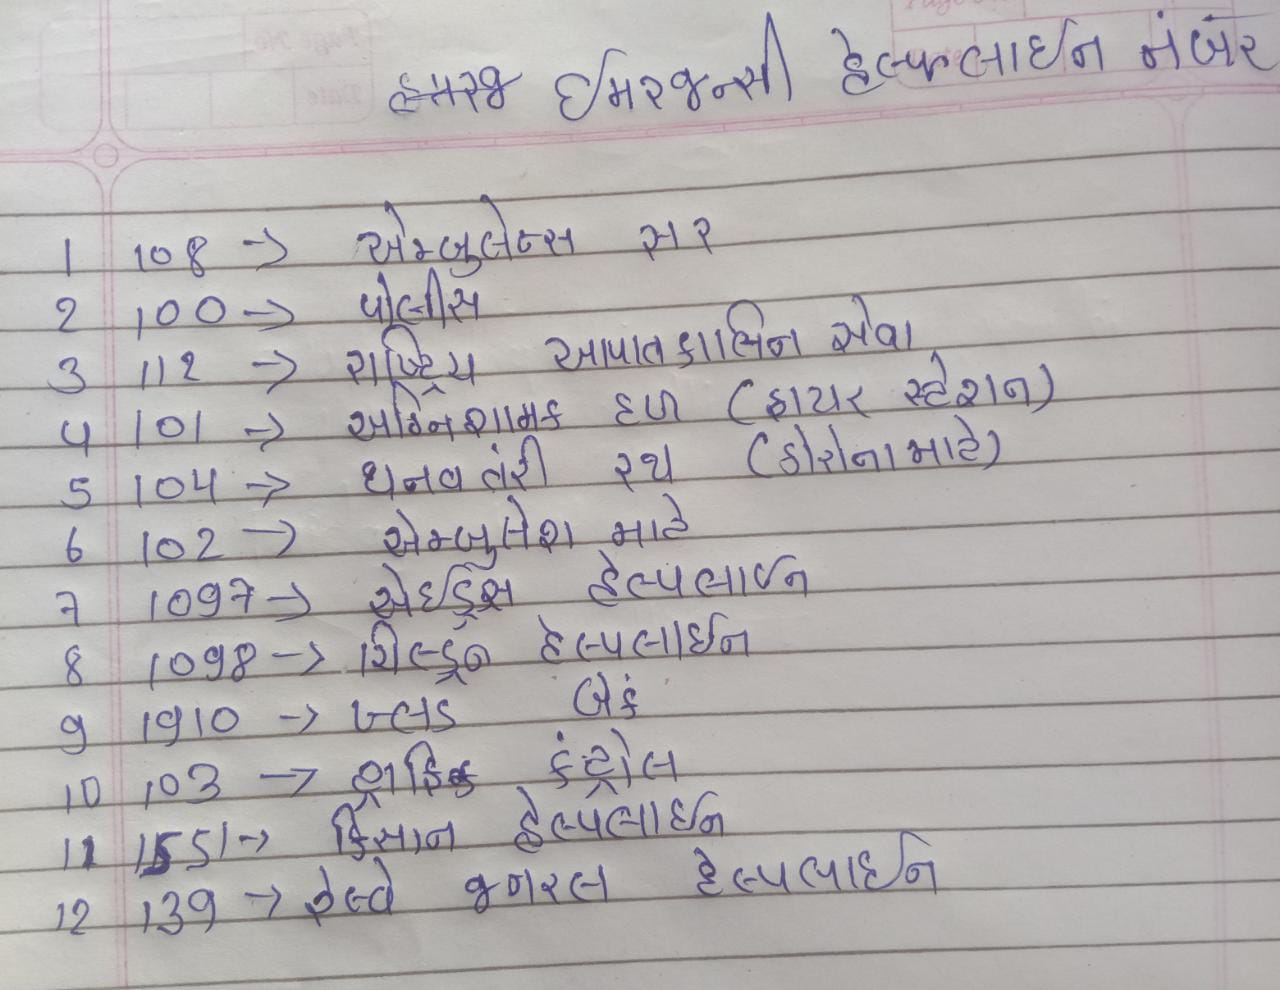 ઈમરજન્સી હેલ્ફલાઈન નંબર
1 108 → એમ્બુલેન્સ સર
2 100 → પોલીસ
3 112 → રાષ્ટ્રિય આપાતકાલિન સેવા
4 101 → અગ્નિશામક દળ (ફાયર સ્ટેશન)
5 104 → ધનવતંરી રથ (કોરોના માટે)
6 102 → એમ્બુલેશ માટે
7 1097 → એઈડ્સ હેલ્પલાઈન
8 1098 → ચિલ્ડ્રન હેલ્પલાઈન
9 1910 → બ્લડ બેકં
10 103 → ટ્રાફિક કંટ્રોલ
11 1551 → કિસાન હેલ્પલાઈન
12 139 → રેલ્વે જનરલ હેલ્પલાઈન